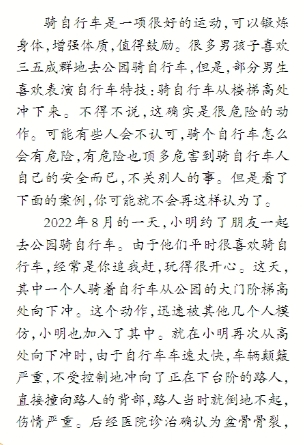 骑自行车是一项很好的运动，可以锻炼
身体，增强体质，值得鼓励。很多男孩子喜欢
三五成群地去公园骑自行车，但是，部分男生
喜欢表演自行车特技：骑自行车从楼梯高处
冲下来。不得不说，这确实是很危险的动
作。可能有些人会不认可，骑个自行车怎么
会有危险，有危险也顶多危害到骑自行车人
自己的安全而已，不关别人的事。但是看了
下面的案例，你可能就不会再这样认为了。
2022年8月的一天，小明约了朋友一起
去公园骑自行车。由于他们平时很喜欢骑自
行车，经常是你追我赶，玩得很开心。这天，
其中一个人骑着自行车从公园的大门阶梯高
处向下冲。这个动作，迅速被其他几个人模
仿，小明也加入了其中。就在小明再次从高
处向下冲时，由于自行车车速太快，车辆颠簸
严重，不受控制地冲向了正在下台阶的路人，
直接撞向路人的背部，路人当时就倒地不起，
伤情严重。后经医院诊治确认为盆骨骨裂，